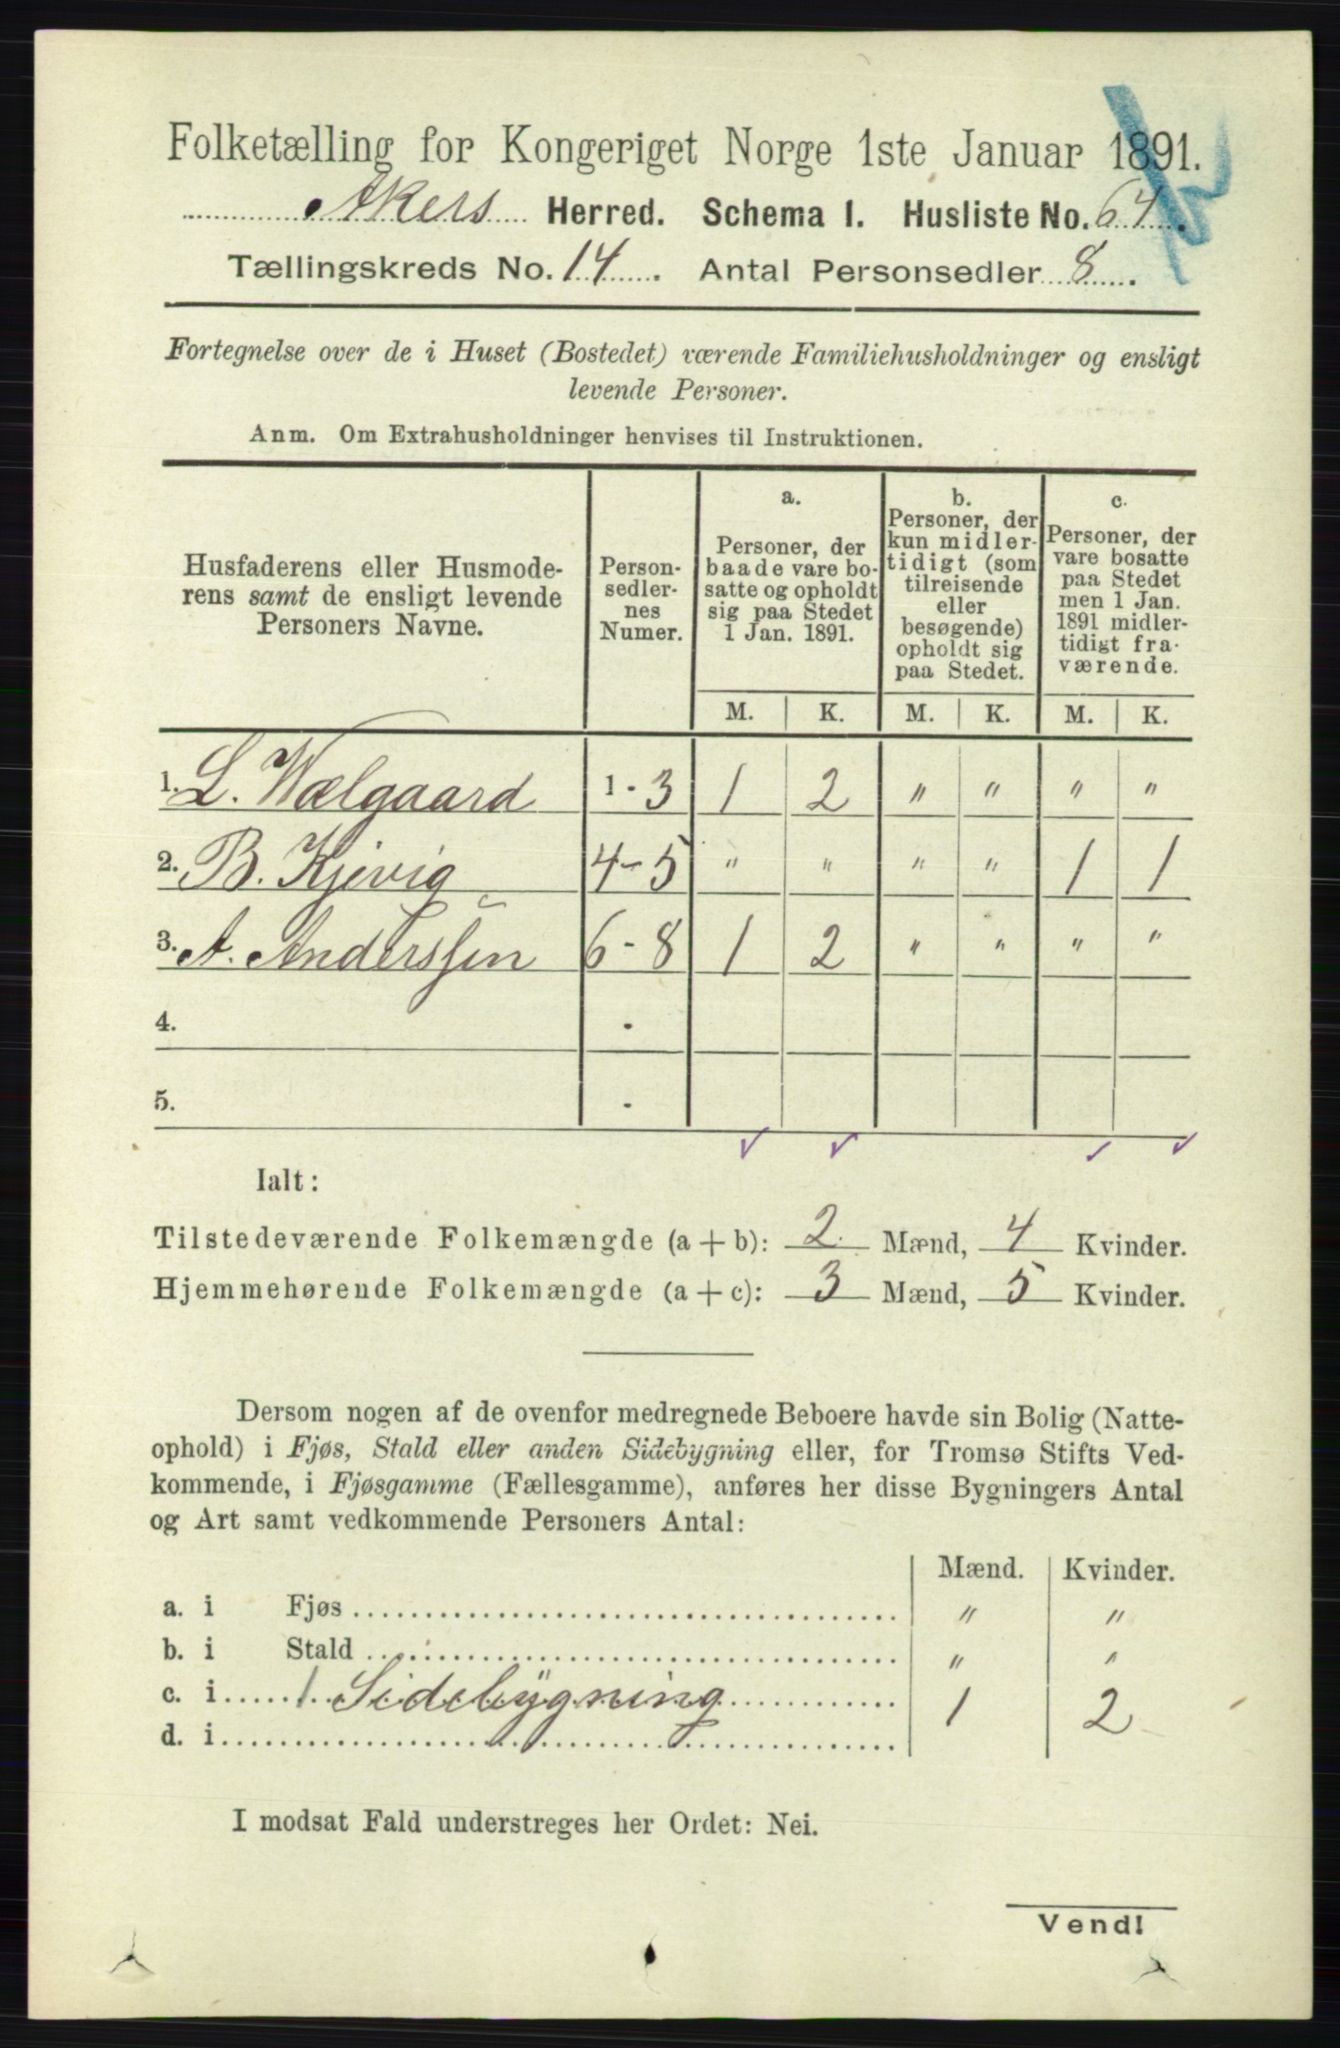 Folketælling for Kongeriget Norge 1ste Januar 1891.
Akers Herred. Schema I. Husliste No. 64.
Tællingskreds No. 14. Antal Personsedler 8.
Fortegnelse over de i Huset (Bostedet) værende Familiehusholdninger og ensligt
levende Personer.
Anm. Om Extrahusholdninger henvises til Instruktionen.
Husfaderens eller Husmode-
rens samt de ensligt levende
Personers Navne.
Person-
sedler-
nes
Numer.
a.
Personer, der
baade vare bo-
satte og opholdt
sig paa Stedet
1 Jan. 1891.
b.
Personer, der
kun midler-
tidigt (som
tilreisende
eller
besøgende)
opholdt sig
paa Stedet.
c.
Personer, der
vare bosatte
paa Stedet
men 1 Jan.
1891 midler-
tidigt fra-
værende.
M. K. M. K. M. K.
1. L. Wælgaard 1-3 1 2 " " " "
2. B. Kjevig 4-5 " " " " 1 1
3. A. Anderssen 6-8 1 2 " " " "
4. -
5. -
Ialt:
Tilstedeværende Folkemængde (a + b): 2 Mænd, 4 Kvinder.
Hjemmehørende Folkemængde (a + c): 3 Mænd, 5 Kvinder.
Dersom nogen af de ovenfor medregnede Beboere havde sin Bolig (Natte-
ophold) i Fjøs, Stald eller anden Sidebygning eller, for Tromsø Stifts Ved-
kommende, i Fjøsgamme (Fællesgamme), anføres her disse Bygningers Antal
og Art samt vedkommende Personers Antal:
Mænd. Kvinder.
a. i Fjøs " "
b. i Stald " "
c. i 1 Sidebygning 1 2
d. i
I modsat Fald understreges her Ordet: Nei.
Vend!